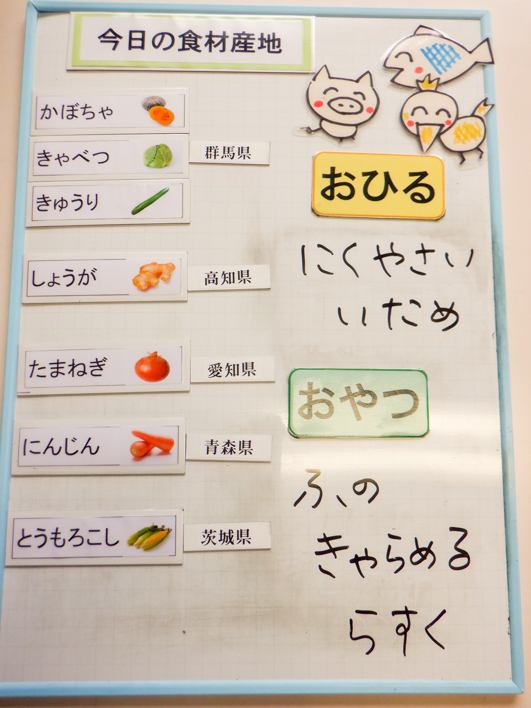 今日の食材産地
かぼちゃ
きゃべつ 群馬県
きゅうり
しょうが 高知県
たまねぎ 愛知県
にんじん 青森県
とうもろこし 茨城県
おひる
にくやさい
いため
おやつ
ふの
きゃらめる
らすく